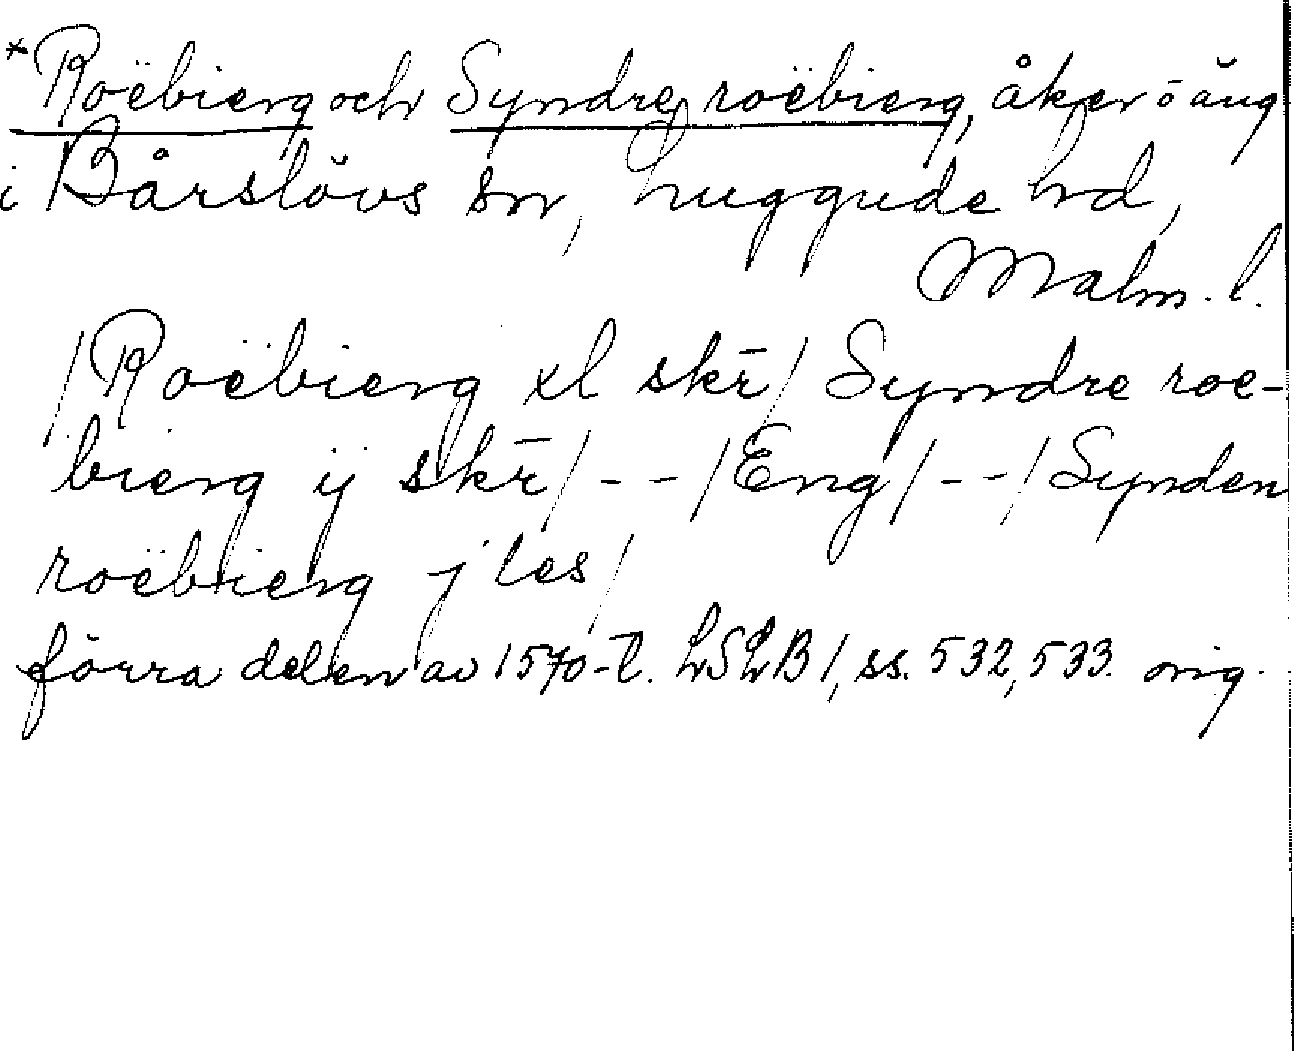 *Roëbierg och Syndre roëbierg, åker o äng
i Bårslövs sn, Luggude hd,
Malm. l.
/Roëbierg xl skr̄/ Syndre roe-
bierg ij skr̄/ - - /Eng/ - - / Synden
roëbierg j les/
förra delen av 1570-t. LSLB 1, ss. 532, 533. orig.